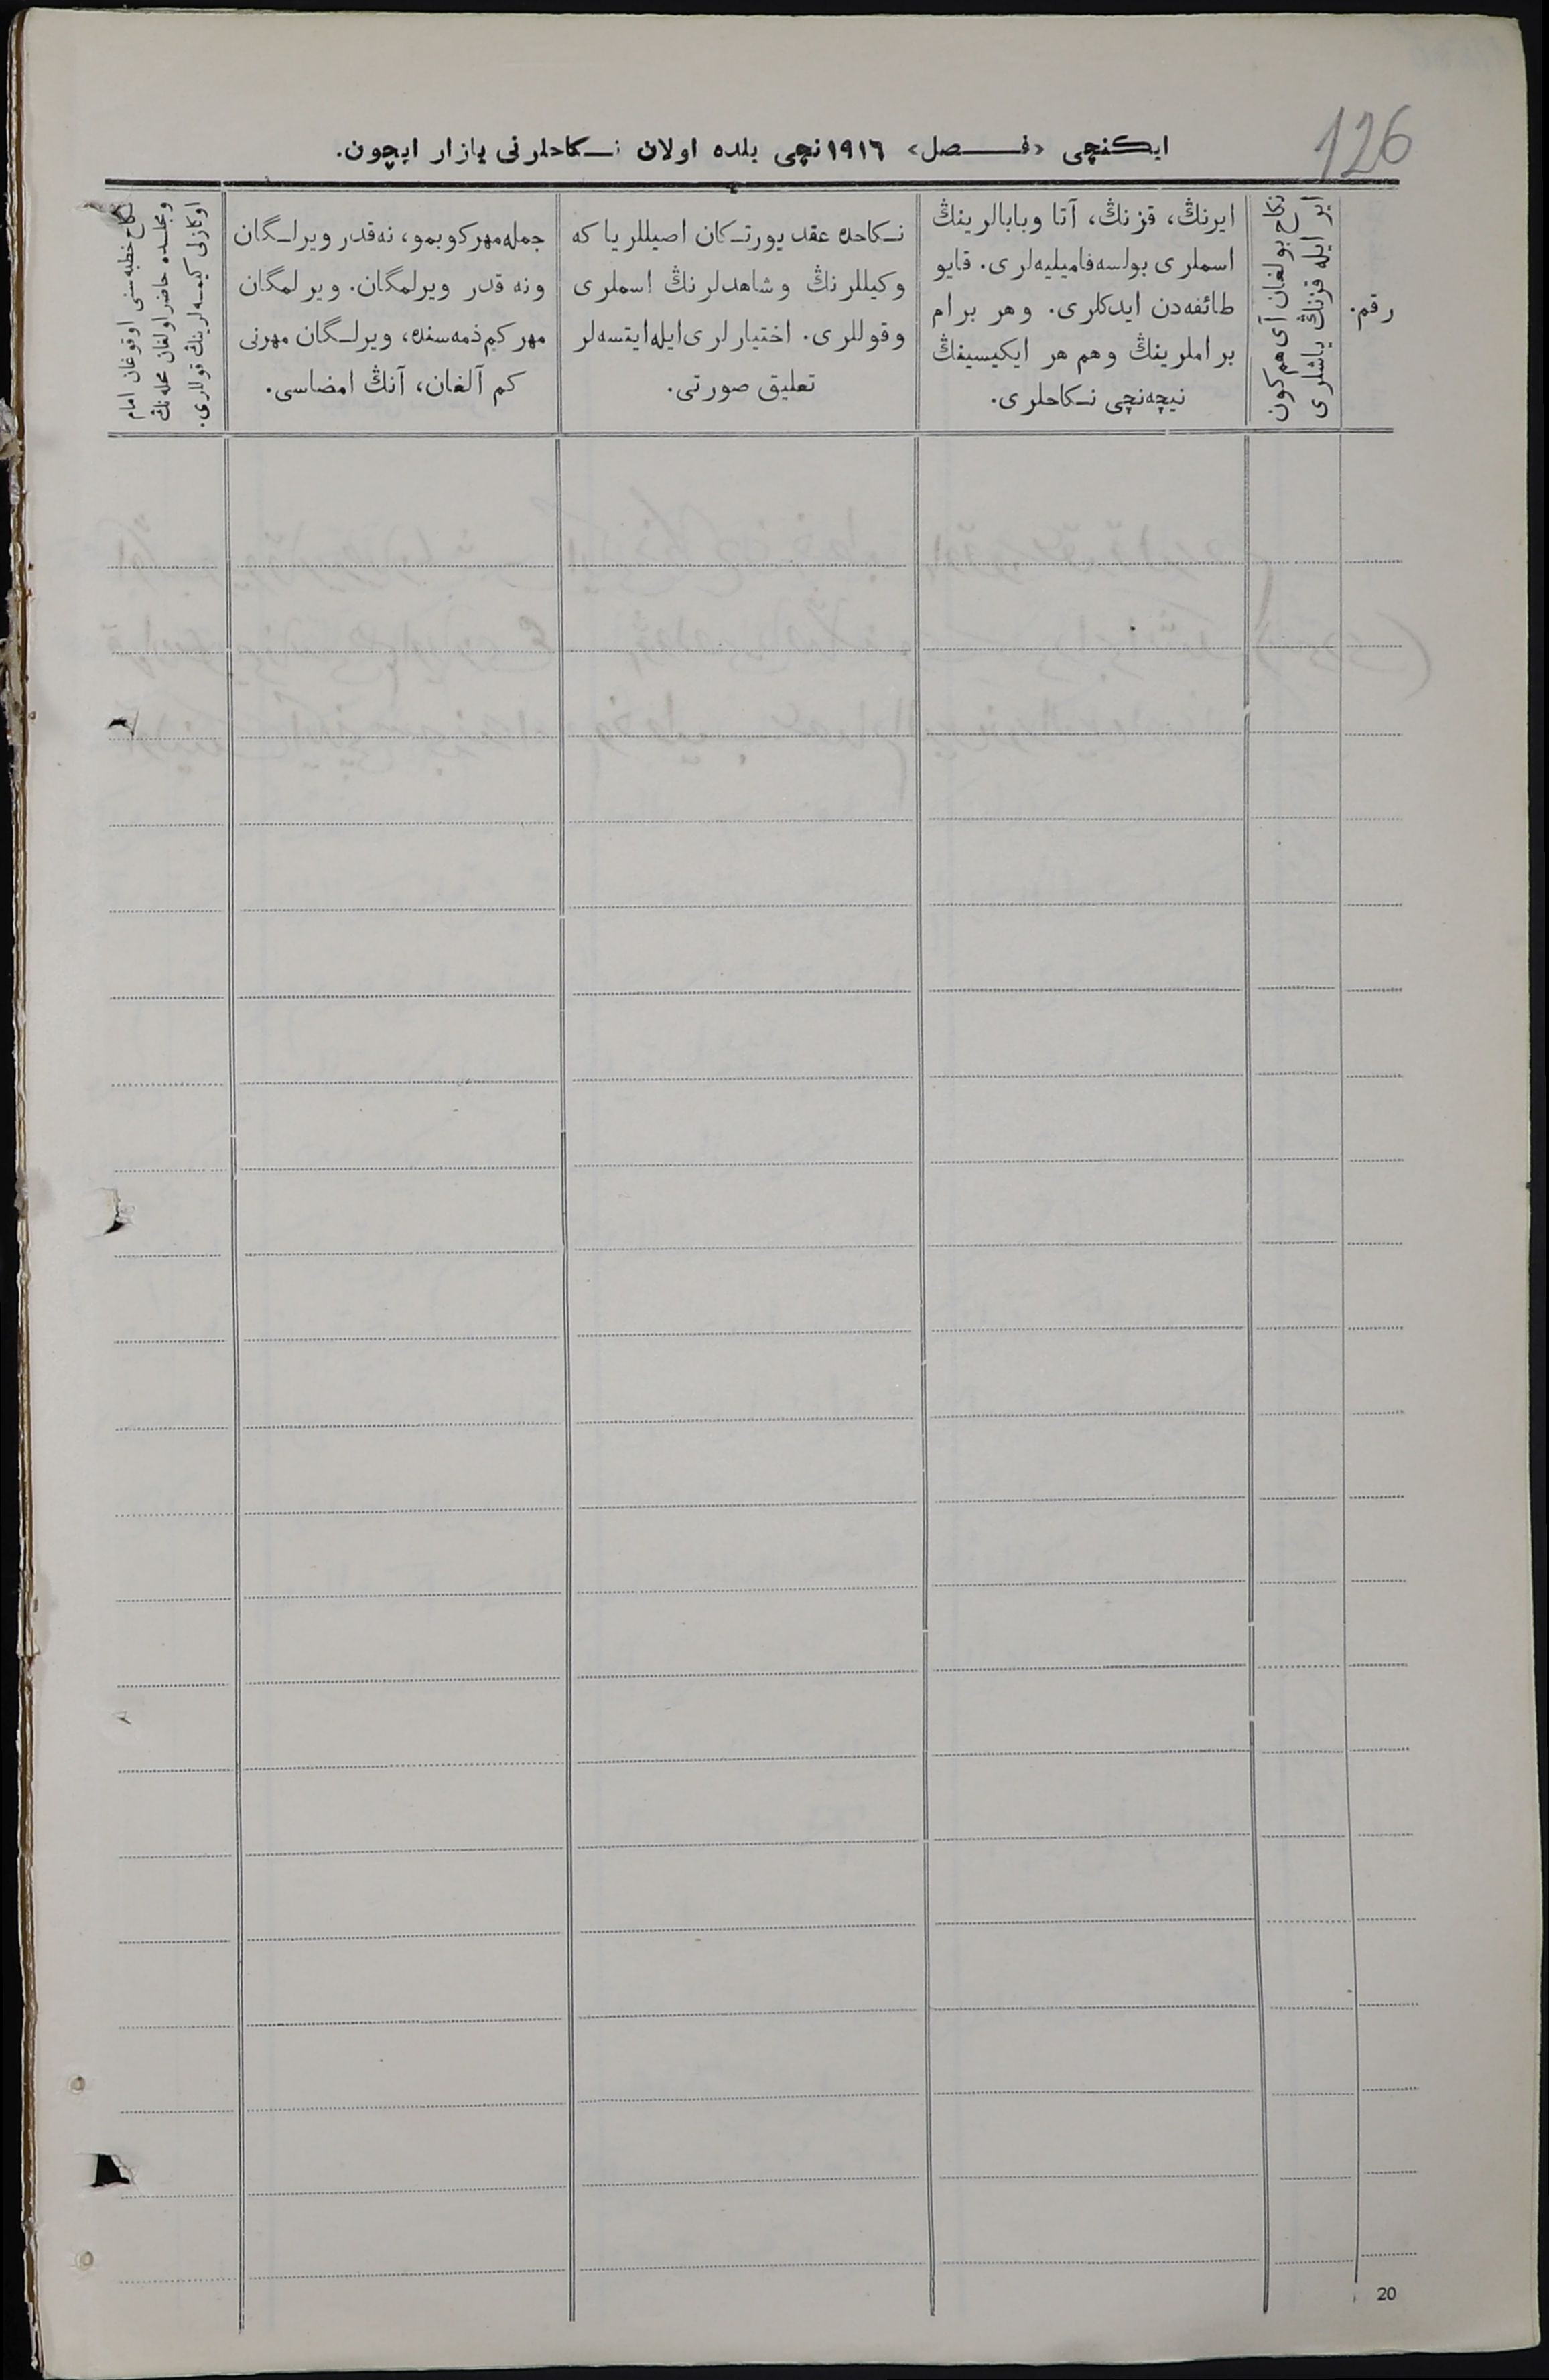 126
ایکنچی «فصل» ١٩١٦نچی یلده اولان نکاحلرنی یازار ایچون.
رقم.
نکاح بولغان آی هم کون
ایر ایله قزنڭ یاشلری
ایرنڭ، قزنڭ، آتا وبابالرینڭ
اسملری بولسه فامیلیه‌لری. قایو
طائفه‌دن ایدکلری. وهر برام
براملرینڭ وهم هر ایکیسینڭ
نیچه‌نچی نکاحلری.
نکاحده عقد یورتکان اصیللر یا که
وکیللرنڭ وشاهدلرنڭ اسملری
وقوللری. اختیارلری ایله ایتسه‌لر
تعلیق صورتی.
جمله مهر کوبمو، نه قدر ویرلگان
ونه قدر ویرلمگان. ویرلمگان
مهر کم ذمه‌سنده، ویرلگان مهرنی
کم آلغان، آنڭ امضاسی.
نکاح خطبه‌سنی اوقوغان امام
ومجلسده حاضر اولغان محله‌نڭ
اوکازلی کیمسه‌لرینڭ قوللاری.
20